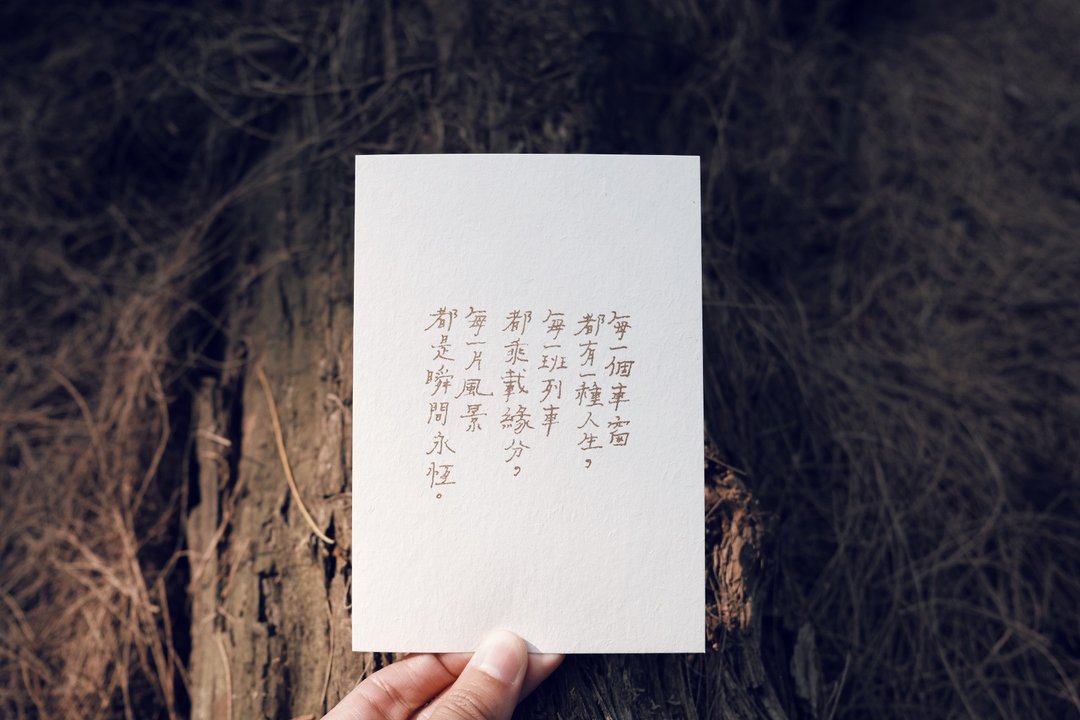 每一個車窗
都有一種人生，
每一班列車
都乘載緣分，
每一片風景
都是瞬間永恆。